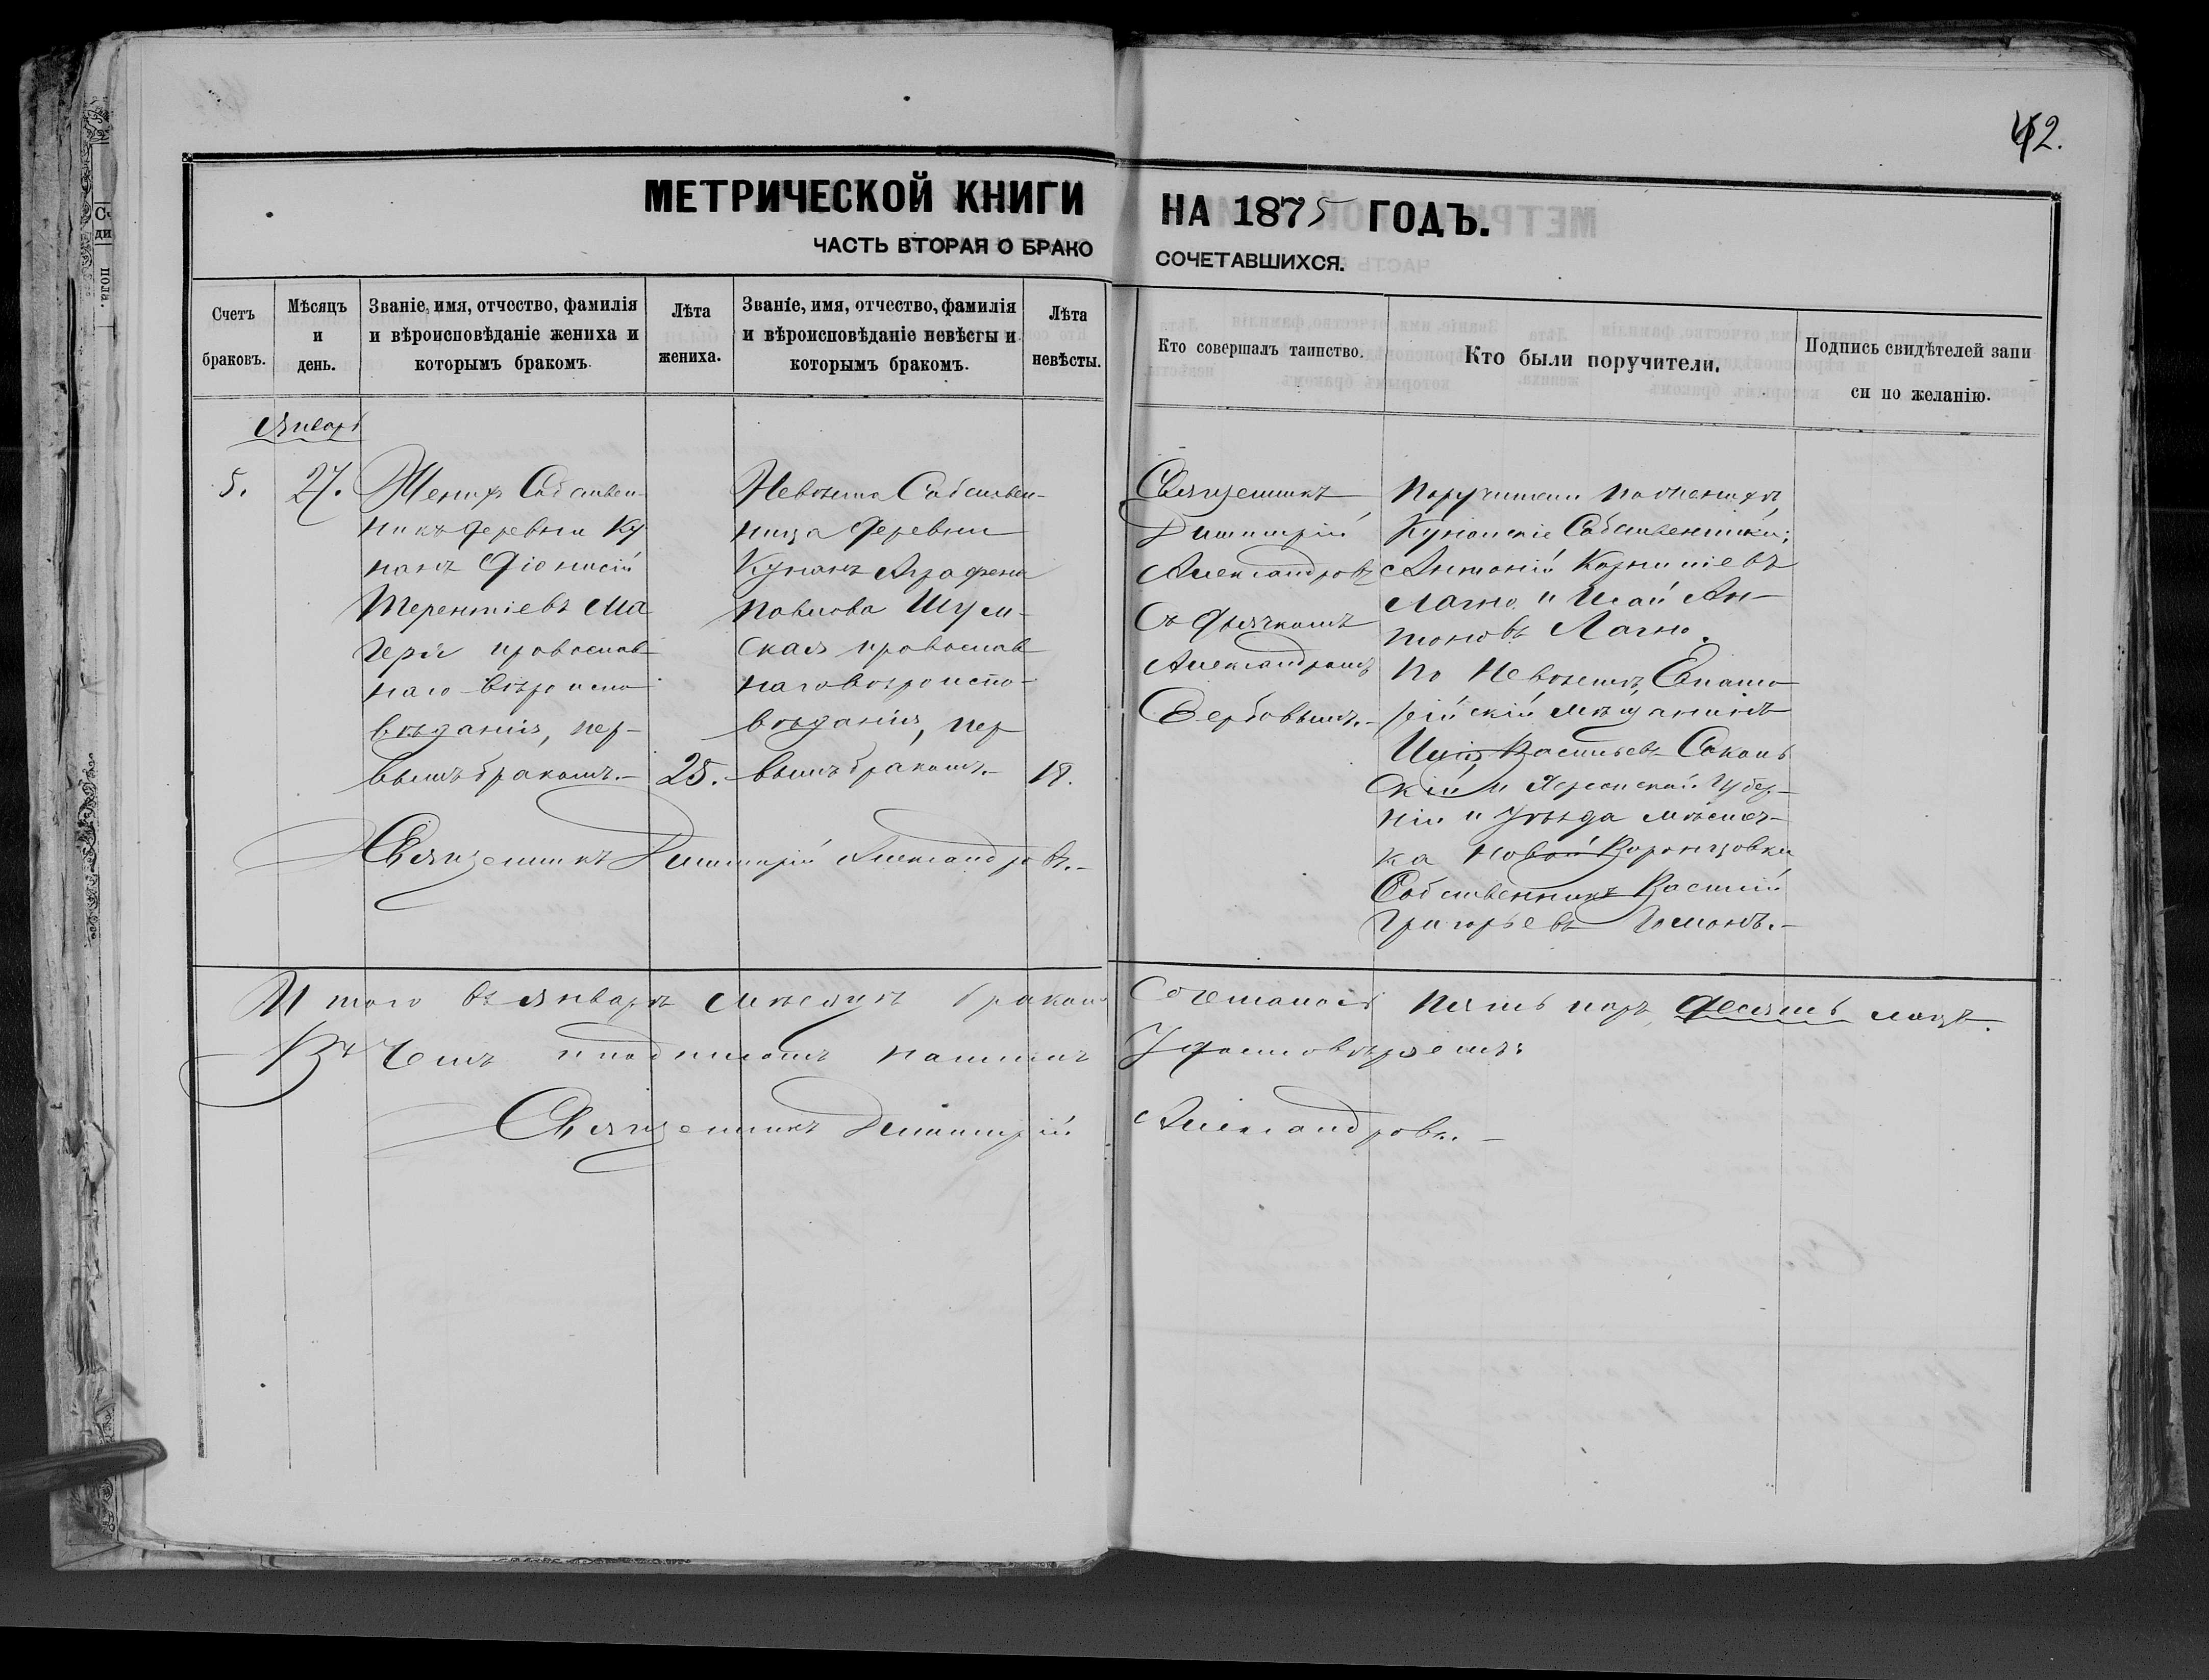 42.
МЕТРИЧЕСКОЙ КНИГИ НА 1875 ГОДЪ.
ЧАСТЬ ВТОРАЯ О БРАКО СОЧЕТАВШИХСЯ.
Счетъ браковъ.
Мѣсяцъ и день.
Званіе, имя, отчество, фамилія и вѣроисповѣданіе жениха и которымъ бракомъ.
Лѣта жениха.
Званіе, имя, отчество, фамилія и вѣроисповѣданіе невѣсты и которымъ бракомъ.
Лѣта невѣсты.
Кто совершалъ таинство.
Кто были поручители.
Подпись свидѣтелей запи
си по желанію.
Январь
5.
27.
Женихъ Собствен-
никъ деревни Ку
нанъ Діонисій
Терентіевъ Ма
геря православ
наго вѣроиспо
вѣданія, пер-
вымъ бракомъ.-
25.
Невѣста Собствен-
ница деревни
Кунанъ Агафена
Павлова Шум-
ская православ
наго вѣроиспо-
вѣданія, пер
вымъ бракомъ.-
18.
Священникъ
Димитрій
Александровъ
Съ дьячкомъ
Александромъ
Сербовымъ.-
Поручители по женихѣ,
Кунанскіе Собственники;
Антоній Корниіевъ
Лагно и Исай Ан-
тоновъ Лагно.
По Невѣстѣ, Евпато
рійскій мѣщанинъ
Васильевъ Соколь
скій и Херсонской Губер-
ніи и Уѣзда мѣстеч-
ка Новой Воронцовки
Собственникъ Василій
Григорьевъ
Священникъ Димитрій Александровъ.-
Итого въ январѣ мѣсяцѣ бракомъ Сочеталось пять паръ десять лицъ.
Въ чемъ и подписомъ нашимъ Удостовѣряемъ:
Священникъ Димитрій Александровъ.-